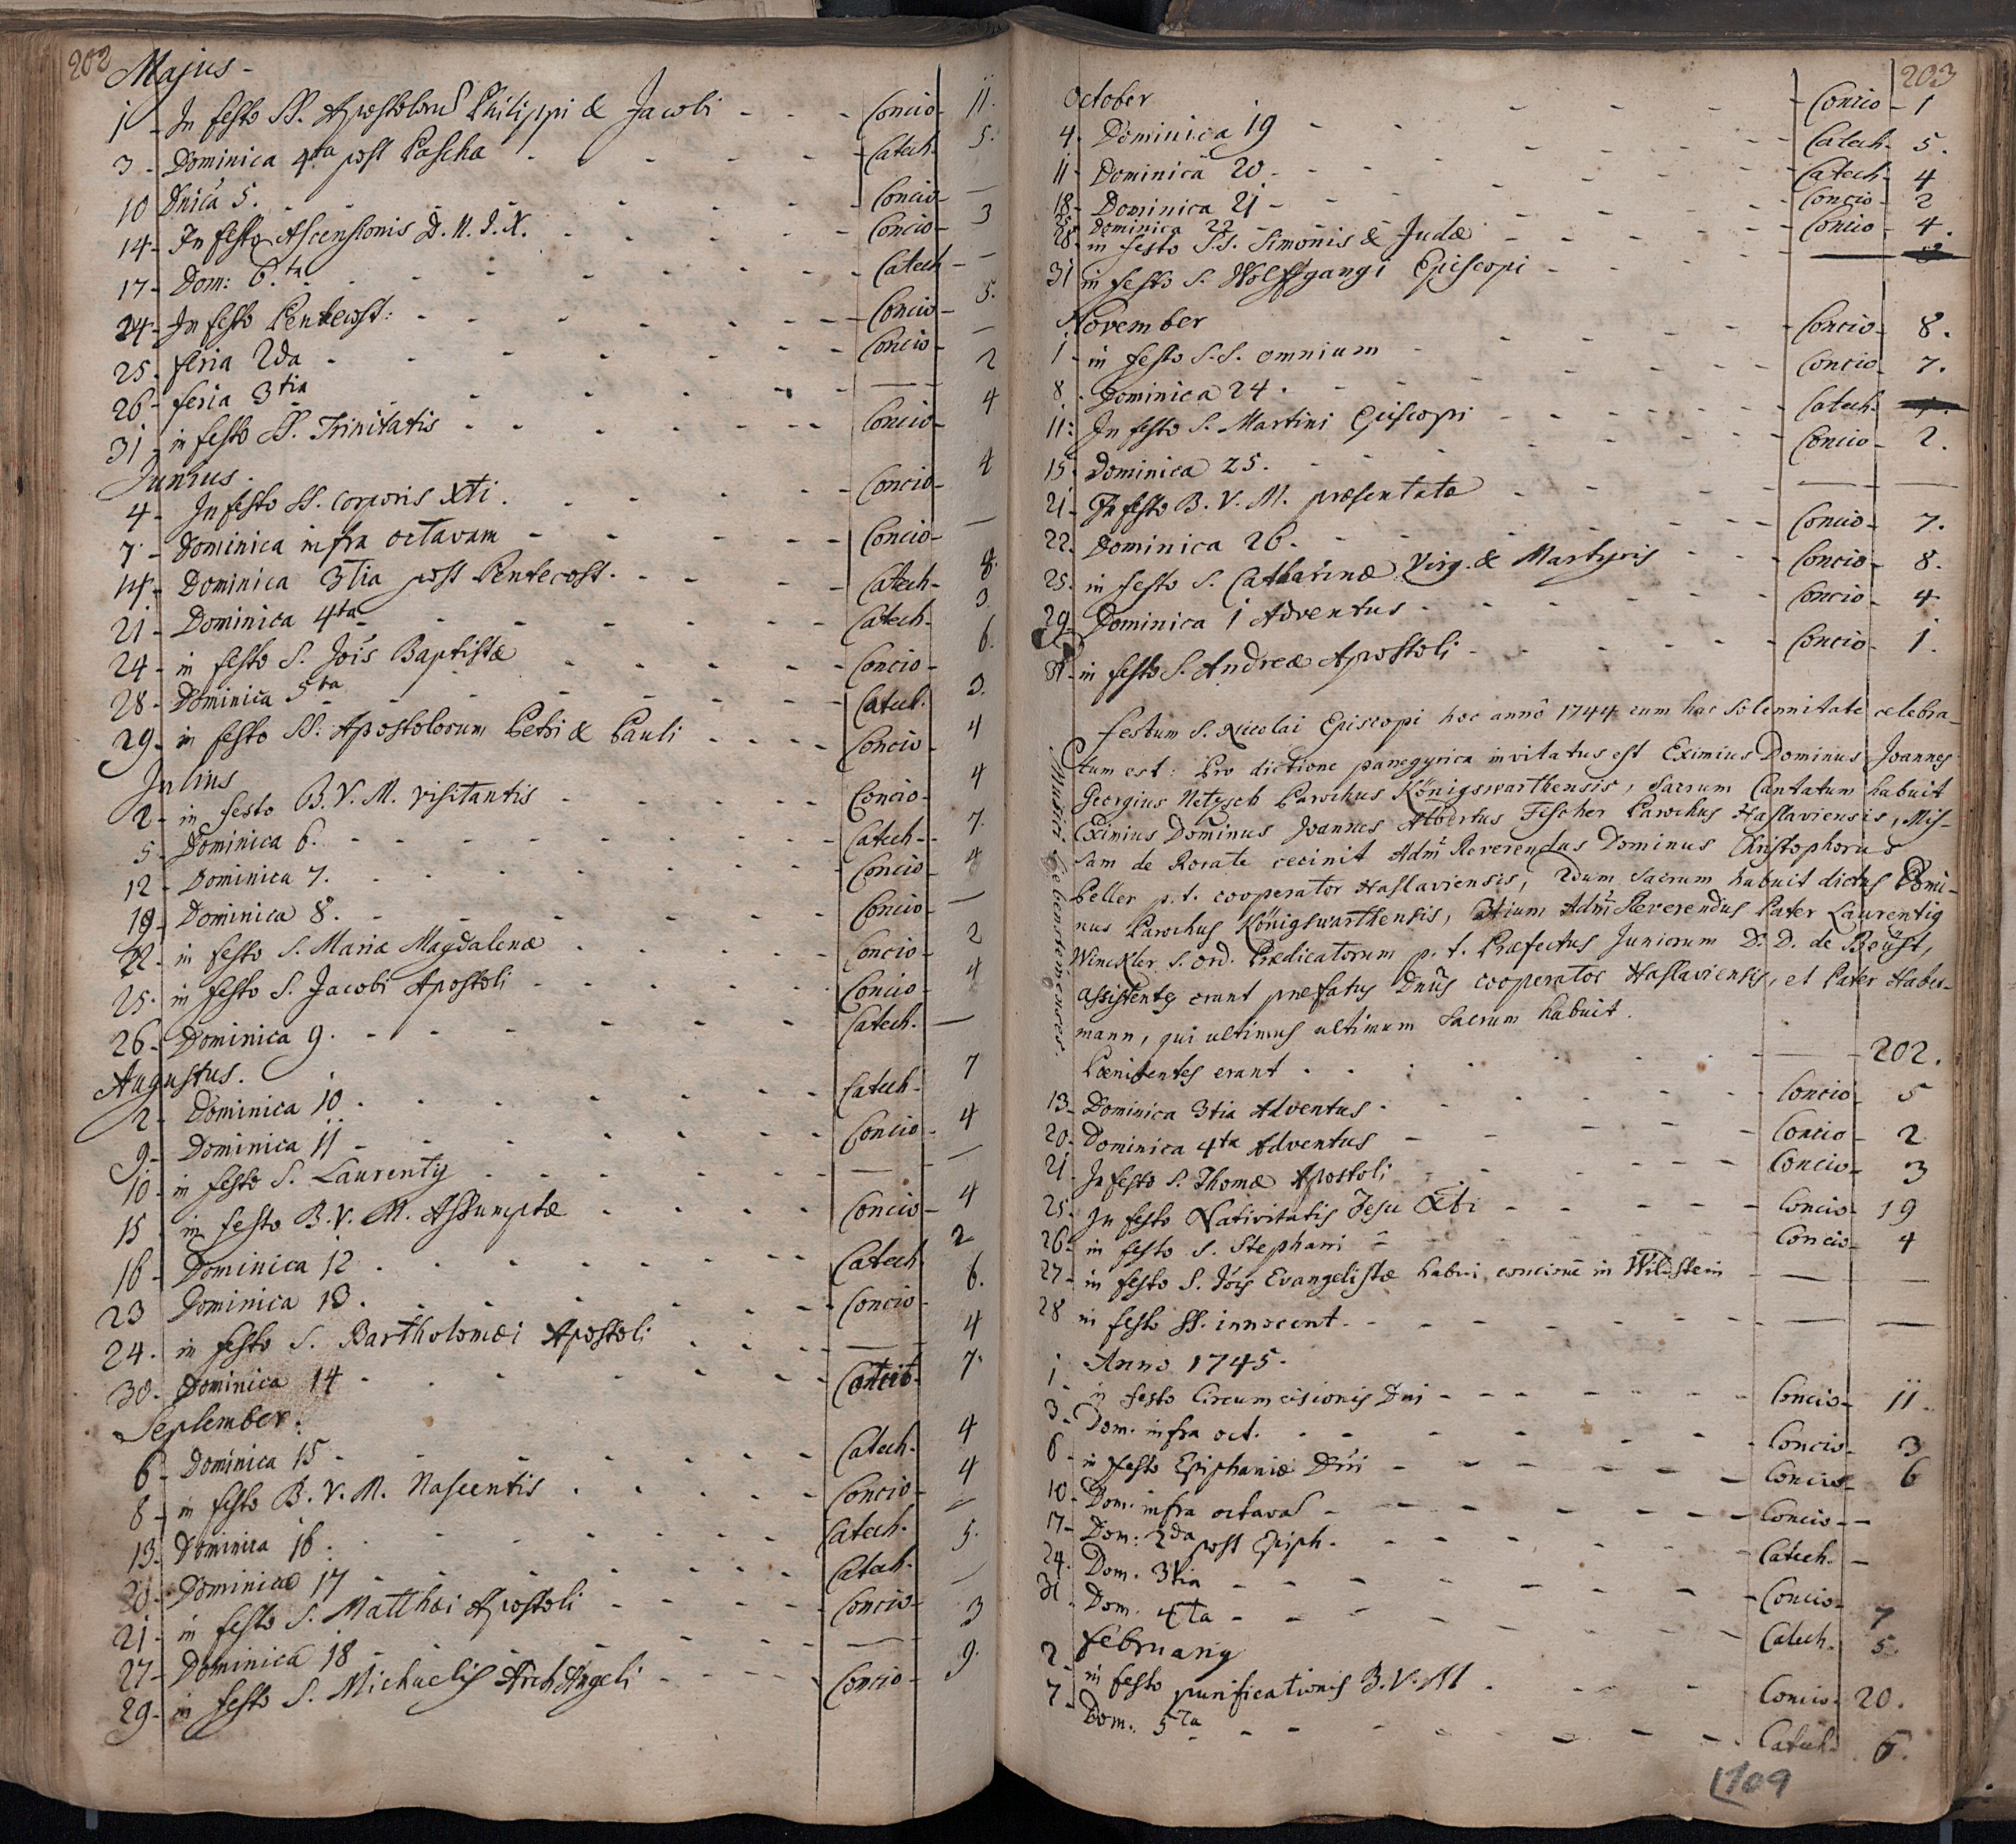 202
Majus -
1 - In festo SS. Apostolorum Philippi & Jacobi - - - Concio - 11.
3 - Dominica 4ta post Pascha - - - Catech. 5.
10 Dnica 5. - - - Concio - —
14 - In festo Ascensionis D. N. J. X. - - - Concio - 3
17 - Dom: 6.ta - - - Catech - —
24 - In festo Pentecost: - - - Concio - 5.
25. feria 2da - - - Concio - —
26 - feria 3tia - - - — 2
31 - in festo SS. Trinitatis - - - Concio - 4
Junius.
4 - In festo SS. corporis Xti. - - - Concio - 4
7 - Dominica infra octavam - - - Concio - —
14 - Dominica 3tia post Pentecost. - - - Catech - 8.
21 - Dominica 4ta - - - Catech. 3
24 - in festo S. Jois Baptistæ - - - Concio - 6.
28 - Dominica 5ta - - - Catech. 3.
29 - in festo SS. Apostolorum Petri & Pauli - - - Concio - 4
Julius
2 - in festo B. V. M. visitantis - - - Concio - 4
5 - Dominica 6. - - - Catech - 7.
12 - Dominica 7. - - - Concio - 4
19 - Dominica 8. - - - Concio - —
22 - in festo S. Mariæ Magdalenæ - - - Concio - 2
25. in festo S. Jacobi Apostoli - - - Concio - 4
26 - Dominica 9. - - - Catech. —
Augustus.
2 - Dominica 10 - - - Catech. 7
9 - Dominica 11 - - - Concio - 4
10 - in festo S. Laurentij - - - — —
15 - in festo B. V. M. Assumptæ - - - Concio - 4
16 - Dominica 12 - - - Catech. 2
23 Dominica 13. - - - Concio - 6.
24. in festo S. Bartholomæi Apostoli - - - — 4
30. Dominica 14 - - - Concio - 7.
September.
6 - Dominica 15 - - - Catech. 4
8 - in festo B. V. M. Nascentis - - - Concio - 4
13. Dominica 16. - - - Catech. —
20. Dominica 17 - - - Catech. 5.
21 - in festo S. Matthæi Apostoli - - - Concio - —
27 - Dominica 18 - - - — 3
29 - in festo S. Michaelis ArchAngeli - - - Concio - 9.
203
October
4. Dominica 19 - - - Concio - 1
11 - Dominica 20 - - - Catech. 5.
18 - Dominica 21 - - - Catech. 4
25. Dominica 22 - - - Concio - 2
28 - in festo S.S. Simonis & Judæ - - - Concio - 4.
31 in festo S. Wolffgangi Episcopi - - - —
November
1 - in festo S.S. omnium - - - Concio - 8.
8. Dominica 24. - - - Concio - 7.
11: In festo S. Martini Episcopi - - - Catech.
15. Dominica 25. - - - Concio - 2.
21 - In festo B. V. M. præsentatæ - - - — —
22. Dominica 26. - - - Concio - 7.
25. in festo S. Catharinæ Virg. & Martyris - - - Concio - 8.
29 - Dominica 1 Adventus - - - Concio - 4
in festo S. Andreæ Apostoli - - - Concio - 1.
festum S. Nicolai Episcopi hoc anno 1744 cum hac solemnitate celebra-
tum est: Pro dictione panegyrica invitatus est Eximius Dominus Joannes
Georgius Netzsch Parochus Königswarthensis, Sacrum Cantatum habuit
Eximius Dominus Joannes Albertus Fischer Parochus Haslaviensis, Mis-
sam de Rorate cecinit Adm Reverendus Dominus Christophorus
Peller p.t. cooperator Haslaviensis, 2dum Sacrum habuit dictus Domi-
nus Parochus Königswarthensis, 3tium Adm Reverendus Pater Laurentig
Winckler S. ord. Prædicatorum p. t. Præfectus Juniorum D. D. de Beüst,
assistentes erant præfatus Dnus cooperator Haslaviensis, et Pater Haber-
mann, qui ultimus ultimum Sacrum habuit.
Musici Lebensteinenses.
Pænitentes erant - - - — 202.
13 - Dominica 3tia Adventus - - - Concio - 5
20 - Dominica 4ta Adventus - - - Concio - 2
21. In festo S. Thomæ Apostoli - - - Concio - 3
25. In festo Nativitatis Jesu Xti - - - Concio - 19
26 - in festo S. Stephani - - - Concio - 4
27 - in festo S. Jois Evangelistæ habui concione in Wildstein - — —
28 in festo SS. innocent. - - - — —
Anno 1745.
1 - in festo Circumcisionis Dni - - - Concio - 11.
3 - Dom. infra oct. - - - Concio - 3
6 - in festo Epiphaniæ Dni - - - Concio - 6
10 - Dom. infra octavas - - - Concio - —
17 - Dom: 2da post Epiph. - - - Catech. —
24. Dom. 3tia - - - Concio -
31 - Dom. 4ta - - - Catech. 7
februarig 5.
2 - in festo purificationis B. V. M - - - Concio - 20.
7 - Dom. 5ta - - - Catech. 6.
109